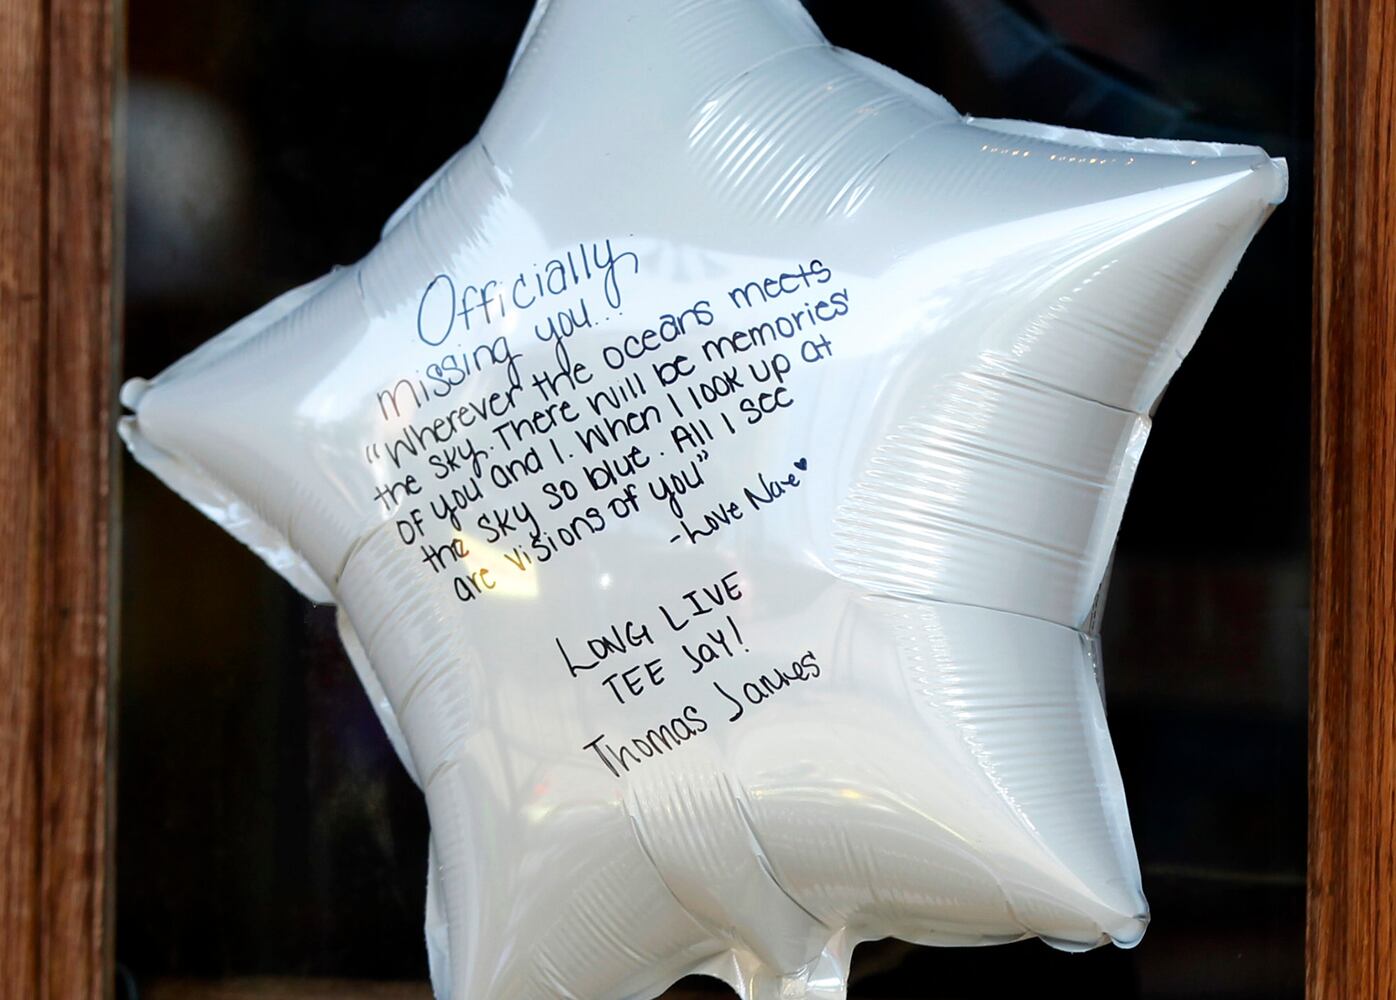 Officially
missing you...
"Wherever the oceans meets
the sky. There will be memories
of you and I. When I look up at
the sky so blue. All I see
are visions of you"
-Love
LONG LIVE
TEE JAY!
Thomas